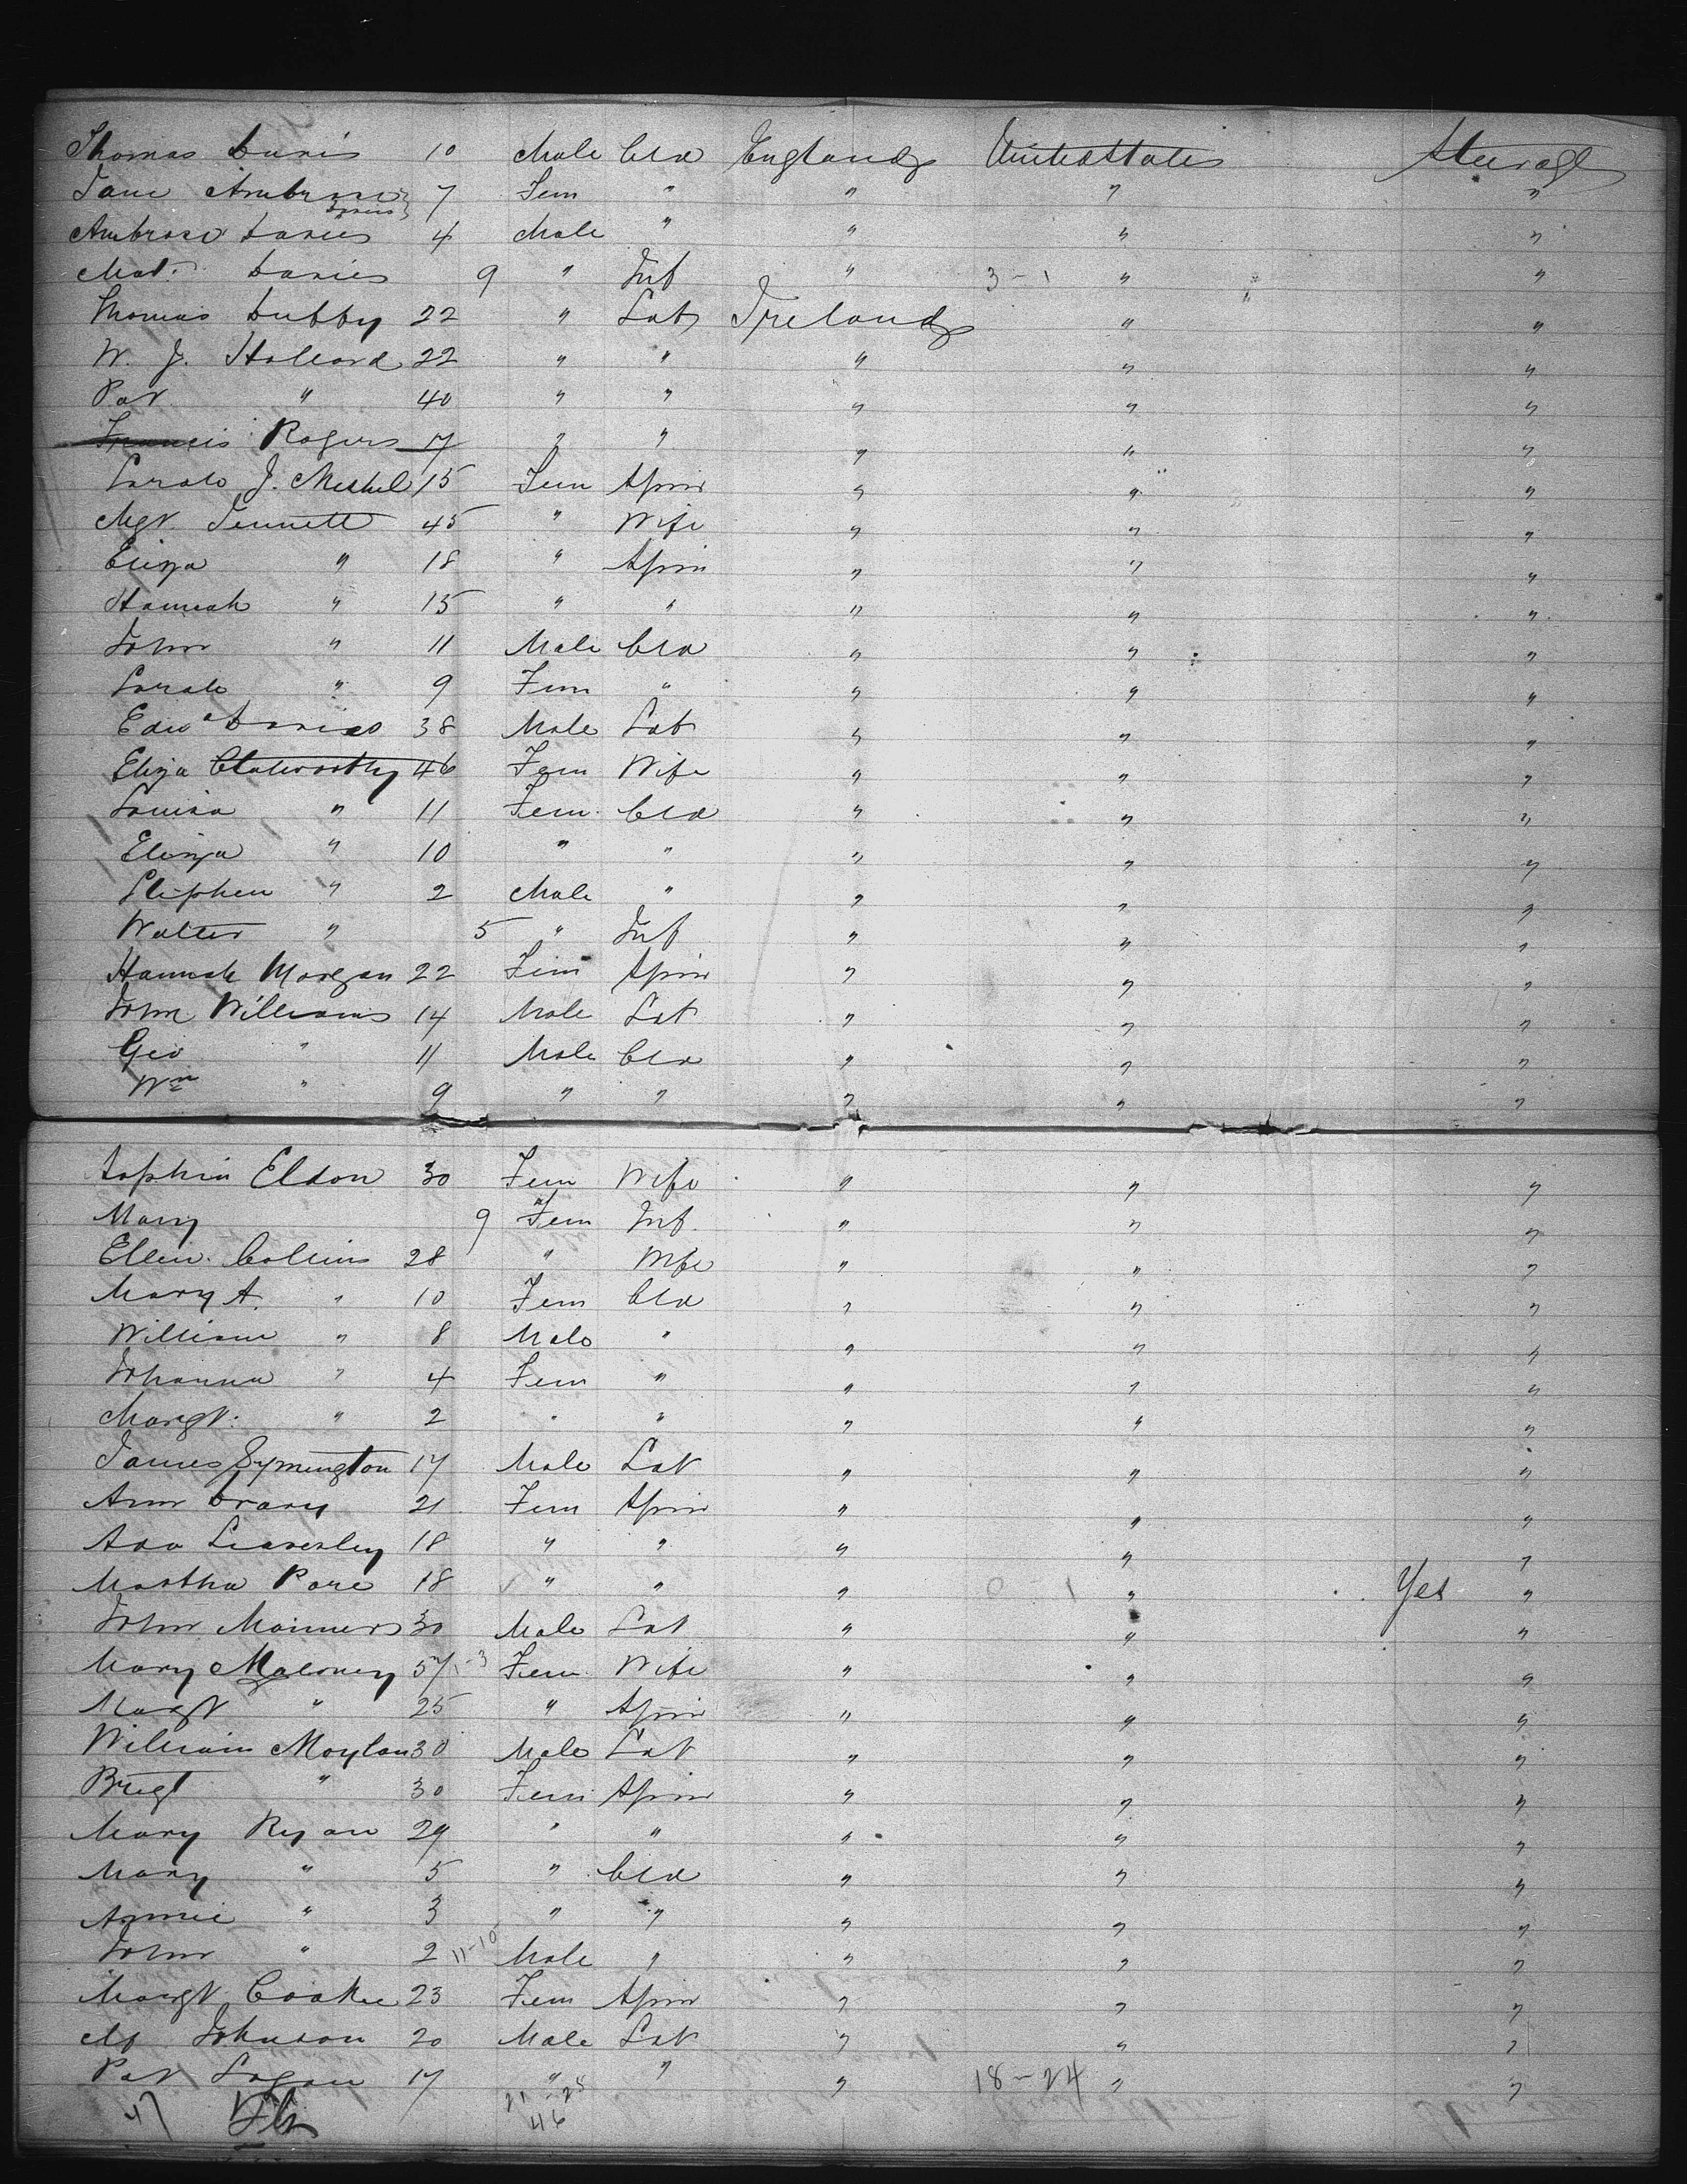 Thomas Davis 10 Male Cld England United States Steerage
Jane Ambrose Davies 7 Fem " " " "
Ambrose Davies 4 Male " " " "
Mat. Davies 9 " Inf " 3-1 " "
Thomas Dubby 22 " Lab Ireland " "
W. J. Hollard 22 " " " " "
Pat " 40 " " " " "
Francis Rogers 17 " " " " "
Sarah J. 15 Fem Spin " " "
Mgt. Jennett 45 " Wife " " "
Eliza " 18 " Spin " " "
Hannah " 15 " " " " "
John " 11 Male Cld " " "
Sarah " 9 Fem " " " "
Edwd Davies 38 Male Lab " " "
Eliza Clatworthy 46 Fem Wife " " "
Louisa " 11 Fem. Cld " " "
Eliza " 10 " " " " "
Stephen " 2 Male " " " "
Walter " 5 " Inf " " "
Hannah Morgan 22 Fem Spin " " "
John Williams 14 Male Lab " " "
Geo " 11 Male Cld " " "
Wm " 9 " " " " "
Sophia Eldon 30 Fem Wife " " "
Mary " 9 Fem Inf. " " "
Ellen Collins 28 " Wife " " "
Mary A. " 10 Fem Cld " " "
William " 8 Male " " " "
Johanna " 4 Fem " " " "
Margt. " 2 " " " " "
James Symington 17 Male Lab " " "
Ann Drary 21 Fem Spin " " "
Ada Leaversley 18 " " " " "
Martha Pore 18 " " " 0 1 " Yes "
John Manners 30 Male Lab " " "
Mary Maloney 57 1-3 Fem Wife " " "
Margt " 25 " Spin " " "
William Moylan 30 Male Lab " " "
Brigt " 30 Fem Spin " " "
Mary Ryan 29 " " " " "
Mary " 5 " Cld " " "
Annie " 3 " " " " "
John " 2 11-10 Male " " " "
Margt Cooke 23 Fem Spin " " "
Johnson 20 Male Lab " " "
Pat Logan 17 " " " 18-24 " "
47 21-25
46